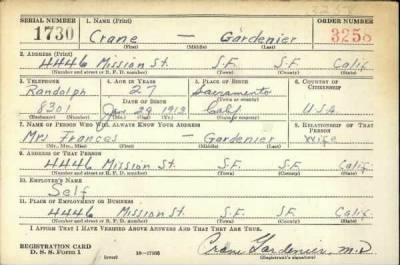 SERIAL NUMBER 1. NAME (Print) ORDER NUMBER
1730 Crane — Gardenier 3258
(First) (Middle) (Last)
2. ADDRESS (Print)
4446 Mission St. S.F. S.F. Calif.
(Number and street or R. F. D. number) (Town) (County) (State)
3. TELEPHONE 4. AGE IN YEARS 5. PLACE OF BIRTH 6. COUNTRY OF CITIZENSHIP
Randolph 27 Sacramento
DATE OF BIRTH (Town or county)
8301 Jan 29 1913 Calif U.S.A.
(Mo.) (Day) (Yr.) (State or country)
7. NAME OF PERSON WHO WILL ALWAYS KNOW YOUR ADDRESS 8. RELATIONSHIP OF THAT PERSON
Mrs Frances — Gardenier Wife
(Mr., Mrs., Miss) (First) (Middle) (Last)
9. ADDRESS OF THAT PERSON
4446 Mission St. S.F. S.F. Calif.
(Number and street or R. F. D. number) (Town) (County) (State)
10. EMPLOYER'S NAME
Self
11. PLACE OF EMPLOYMENT OR BUSINESS
4446 Mission St. S.F. S.F. Calif.
(Number and street or R. F. D. number) (Town) (County) (State)
I AFFIRM THAT I HAVE VERIFIED ABOVE ANSWERS AND THAT THEY ARE TRUE.
REGISTRATION CARD
D. S. S. FORM 1 (over) Crane Gardenier, M.D.
(Registrant's signature)